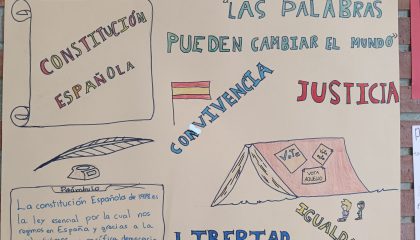 CONSTITUCIÓN
ESPAÑOLA
"LAS PALABRAS
PUEDEN CAMBIAR EL MUNDO"
CONVIVENCIA
JUSTICIA
VoTe
VOTA
IGUALDAD
LIBERTAD
Preámbulo
La constitución Española de 1978 es
la ley esencial por la cual nos
regimos en España y gracias a la
democracia